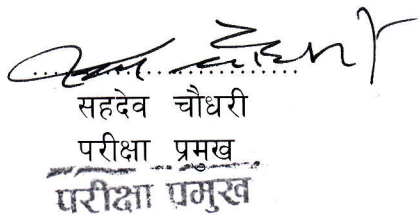 सहदेव चौधरी
परीक्षा प्रमुख
परीक्षा प्रमुख